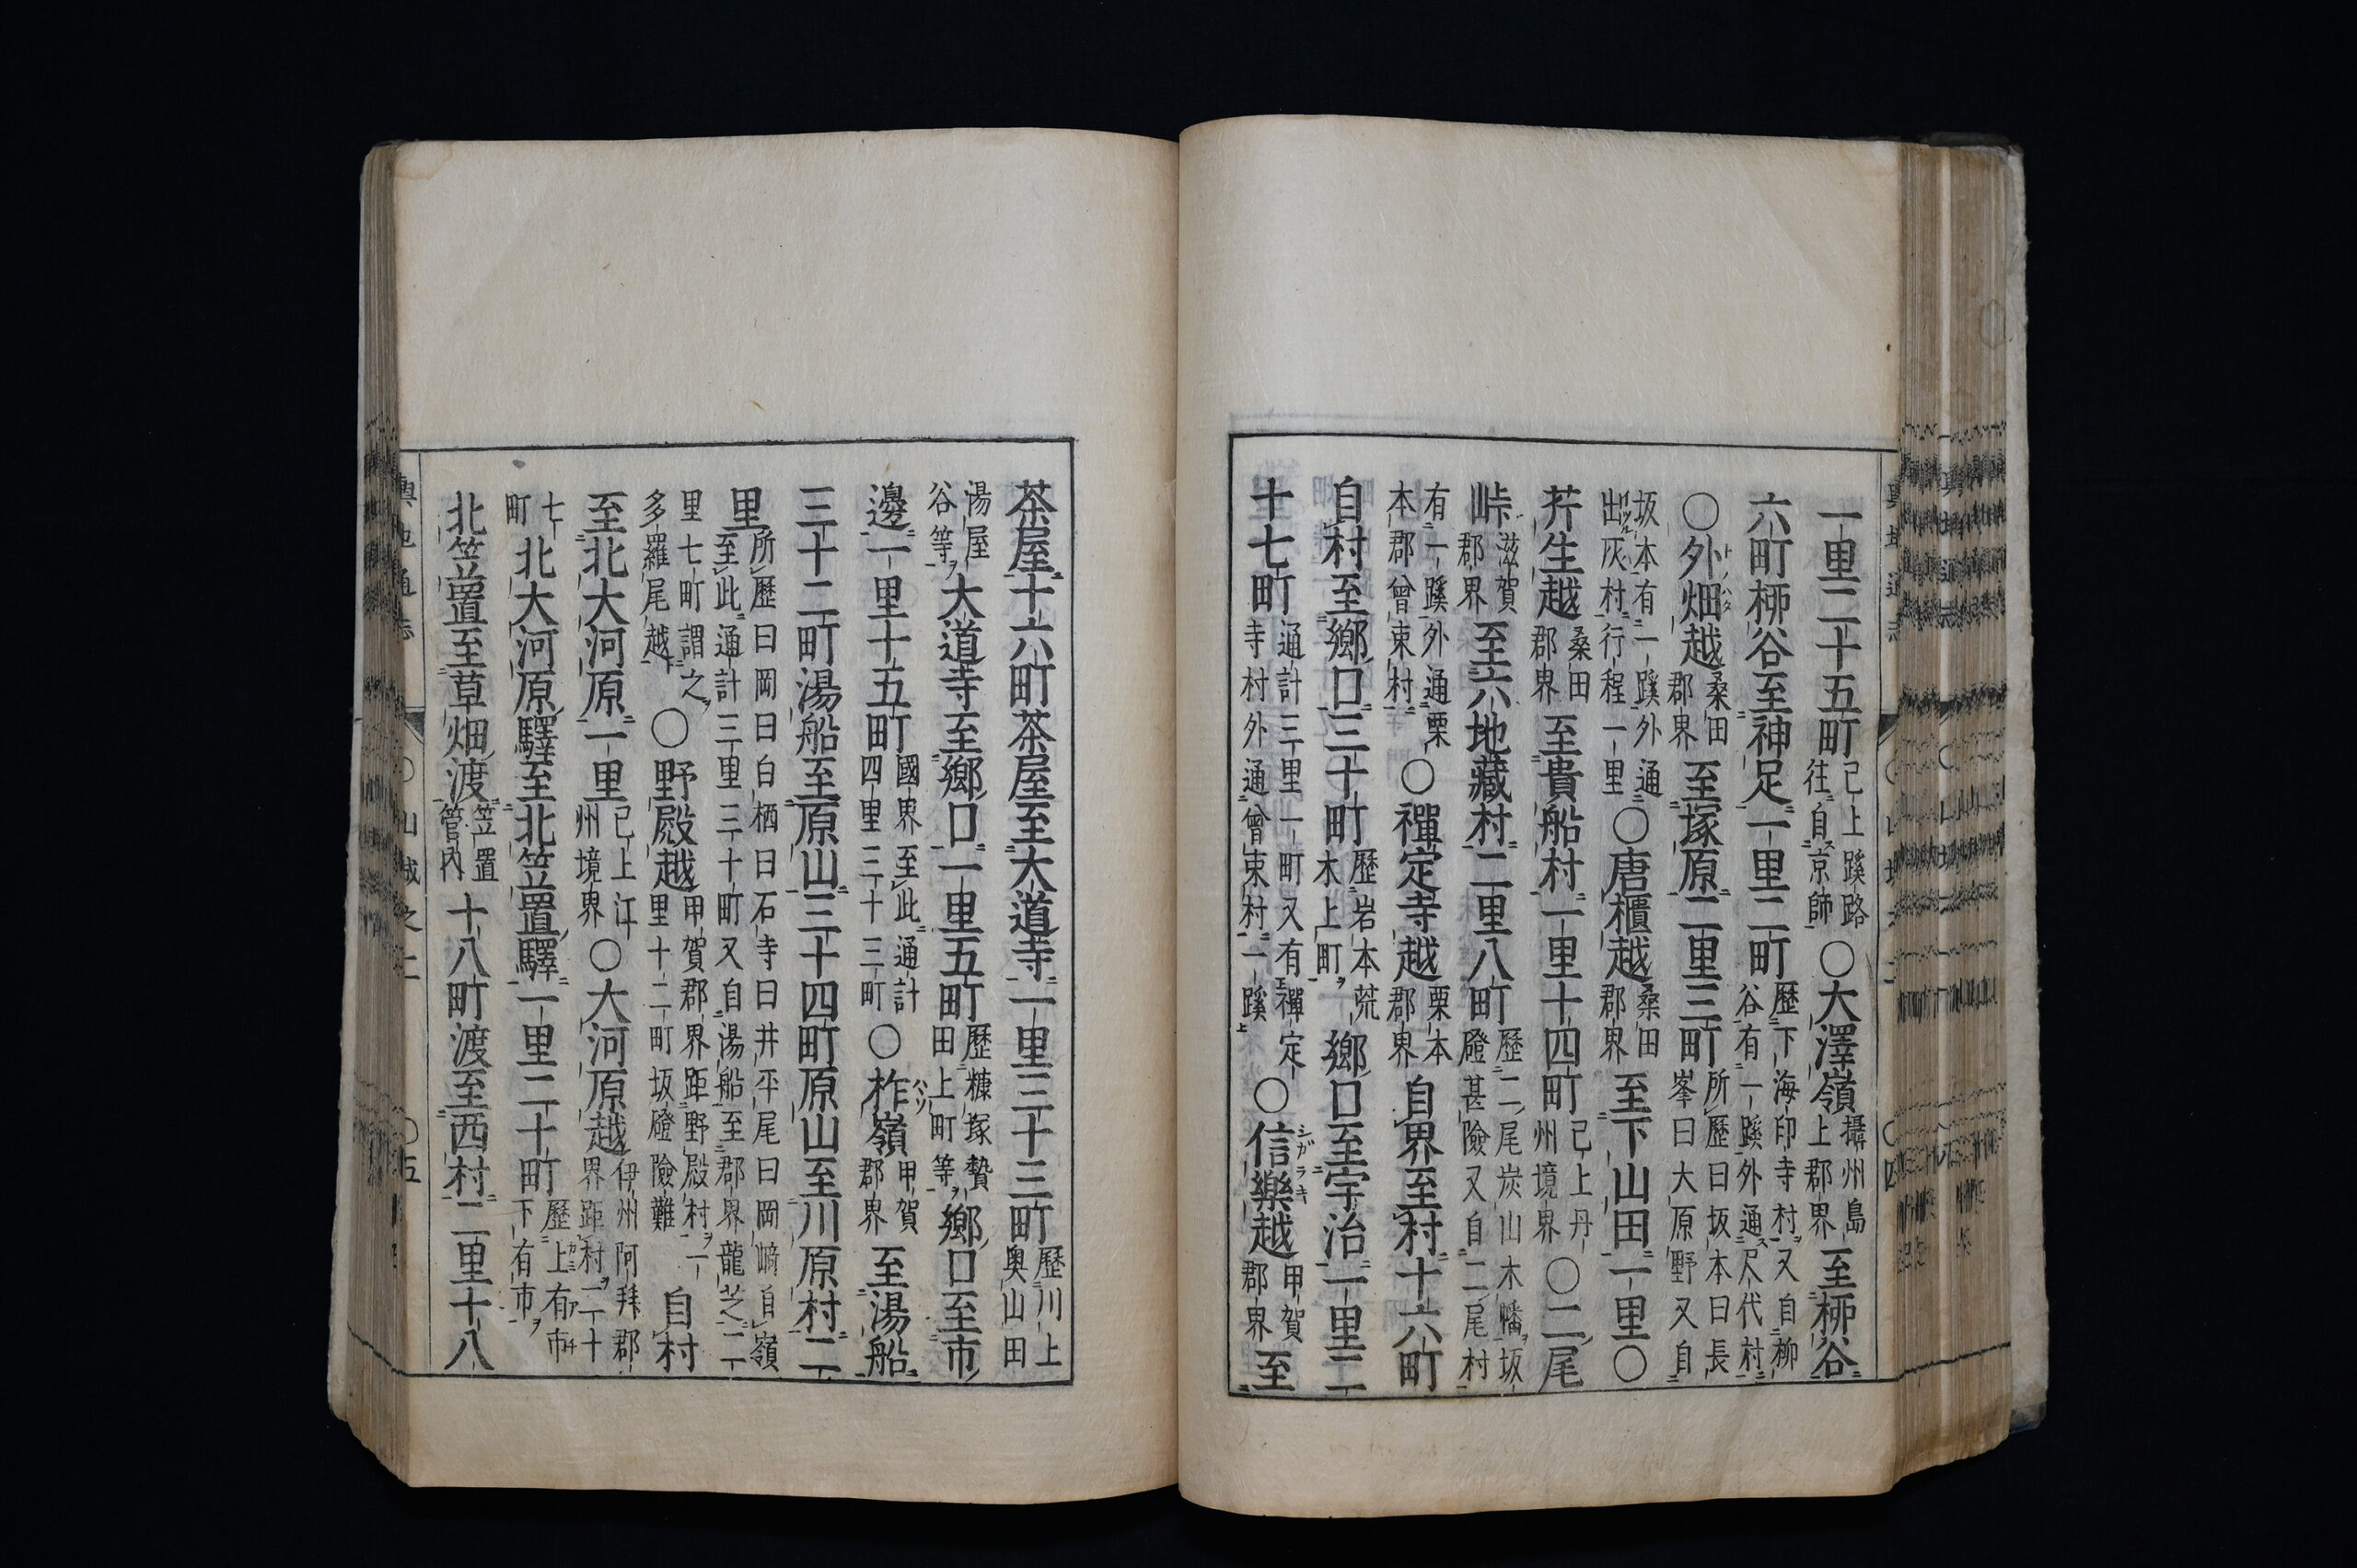 一里二十五町已上蹊路往自京師○大澤嶺攝州島上郡界至栁谷
六町栁谷至神足一里二町歷下海印寺村又自柳谷有一蹊外通尺代村
○外畑越桑田郡界至塚原二里三町所歷曰坂本曰長峯曰大原野又自
坂本有一蹊外通出灰村行程一里○唐櫃越桑田郡界至下山田一里○
芹生越桑田郡界至貴船村一里十四町已上丹州境界○二尾
峠滋賀郡界至六地藏村二里八町歷二尾炭山木幡坂磴甚險又自二尾村
有一蹊外通栗本郡曾束村○禪定寺越栗本郡界自界至村十六町
自村至鄉口三十町歷岩本荒木上町鄉口至宇治一里二
十七町通計三里一町又有禪定寺村外通曾束村一蹊○信樂越甲賀郡界至
茶屋十六町茶屋至大道寺一里三十三町歷川上奧山田
湯屋谷等大道寺至鄉口一里五町歷糠塚贄田上町等鄉口至市
邊一里十五町國界至此通計四里三十三町○柞嶺甲賀郡界至湯船
三十二町湯船至原山三十四町原山至川原村二
里所歷曰岡曰白栖曰石寺曰井平尾曰岡﨑自嶺至此通計三里三十町又自湯船至郡界龍芝二
里七町謂之多羅尾越○野殿越甲賀郡界距野殿村一里十二町坂磴險難自村
至北大河原一里已上江州境界○大河原越伊州阿拜郡界距村二十
七町北大河原驛至北笠置驛一里二十町歷上有市下有市
北笠置至草畑渡笠置管內十八町渡至西村二里十八
輿地通志 ○山城之二 ○五